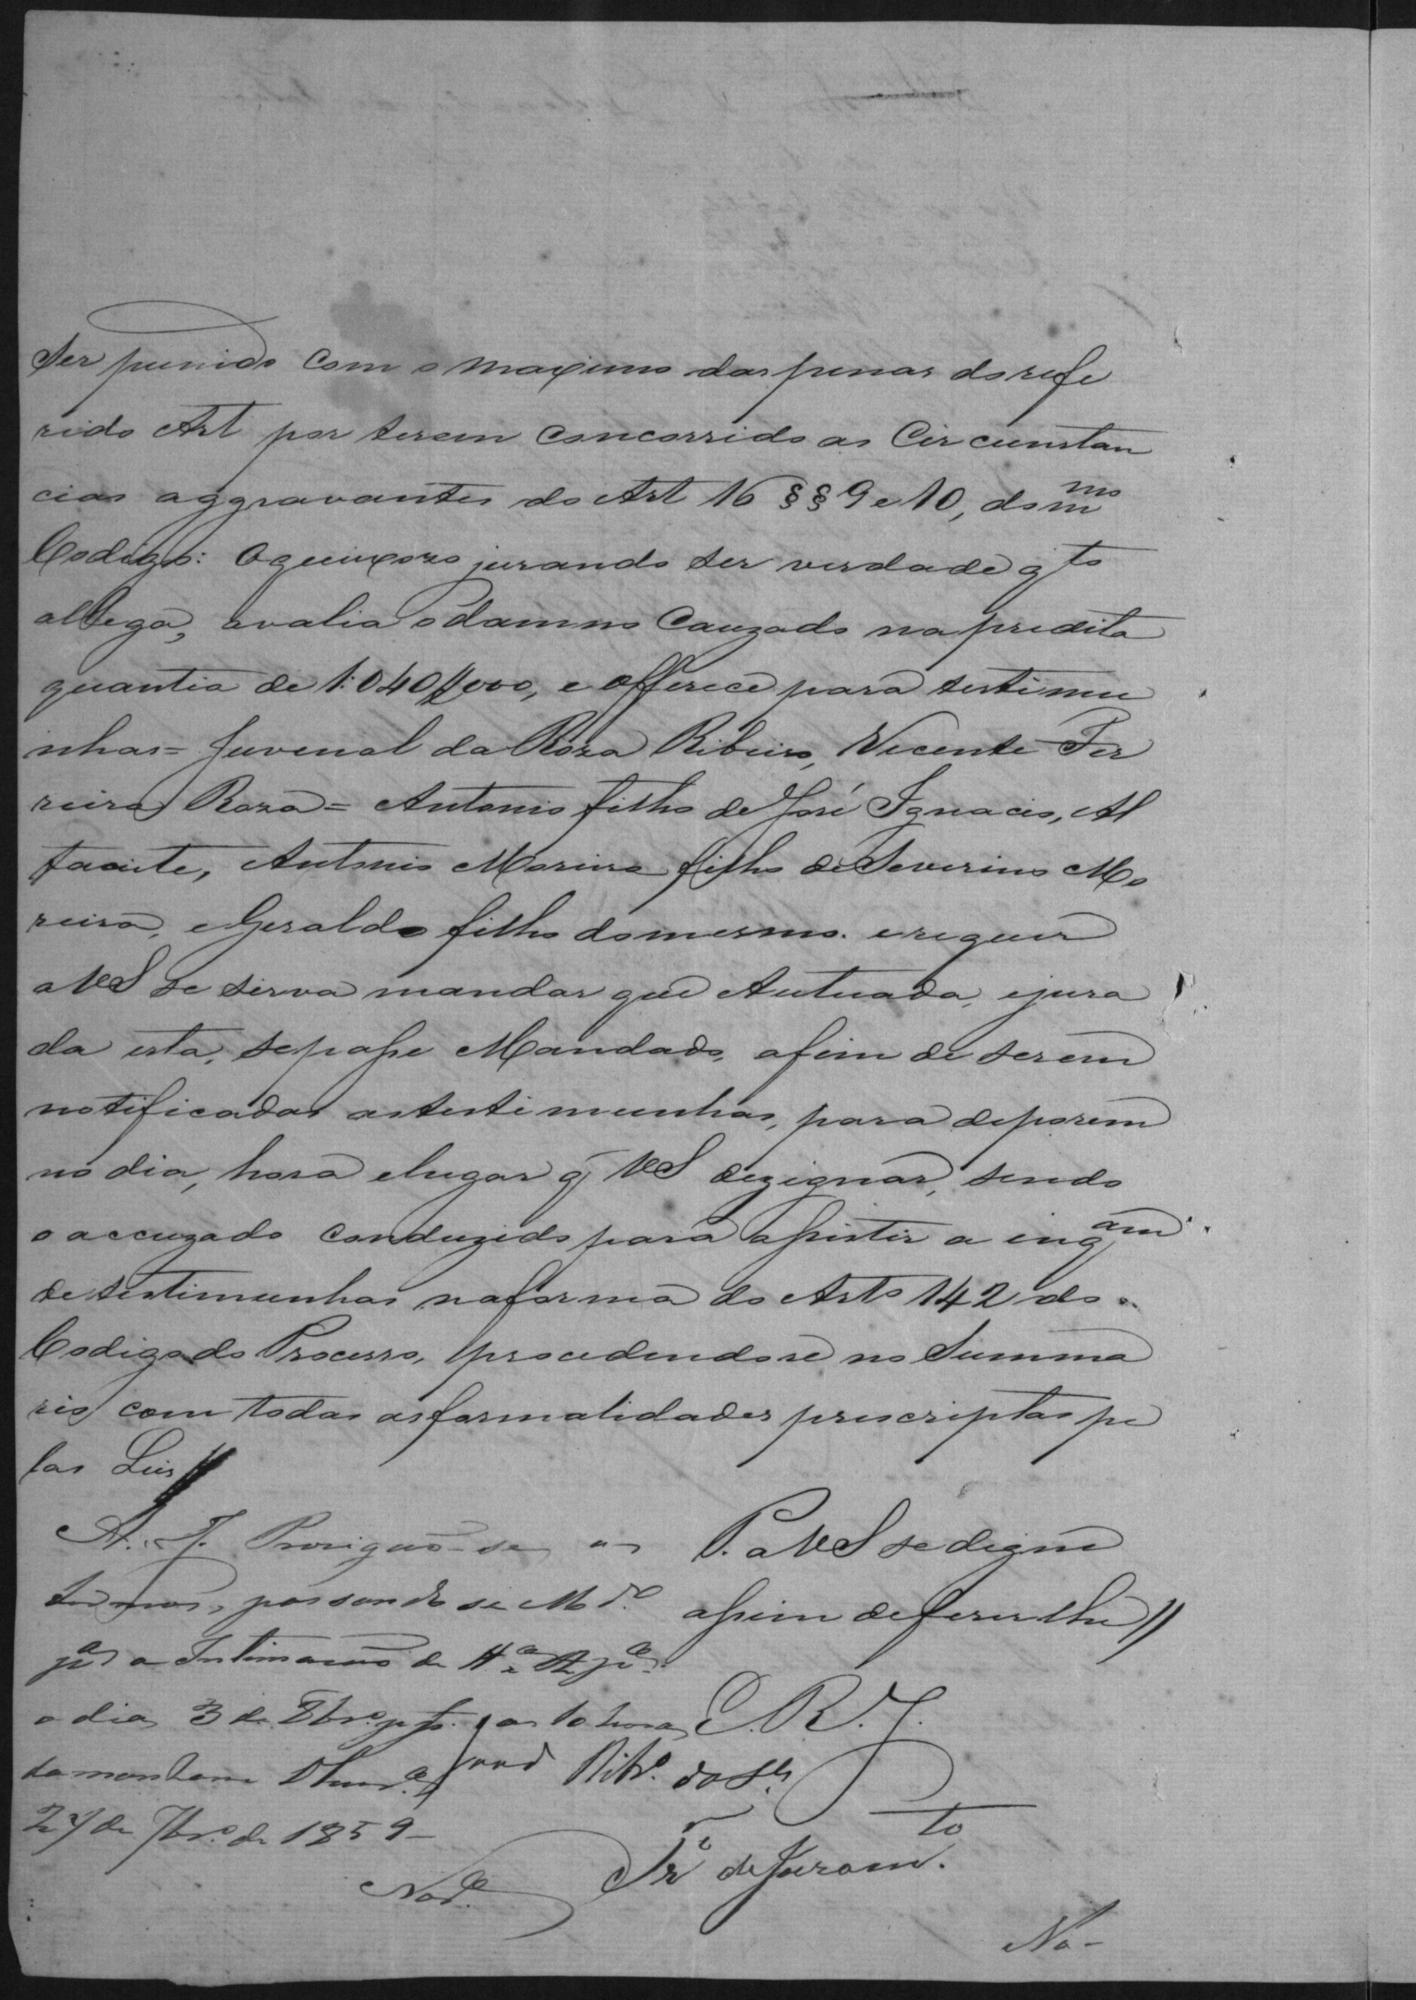 Ser punido com o maximo das penas do refe
rido Art por terem concorrido as Circunstan
cias aggravantes do Art 16 §§ 9 e 10, do m.mo
Codigo: O queixoso jurando ser verdade q.to
allega, avalia o damno Cauzado na predita
quantia de 1:040$000, e offerece para testimu
nhas = Juvenal da Roza Ribeiro, Vicente Fer
reira Roza = Antonio filho de José Ignacio, Al
faiate, Antonio Moreira filho de Severino Mo
reira, e Geraldo filho do mesmo. e requer
a VS se sirva mandar que Autuada, e jura
da esta, se passe Mandado, afim de serem
notificadas as testimunhas, para deporem
no dia, hora e lugar q VS dezignar, sendo
o accuzado conduzido para assistir a inq.am
de testimunhas na forma do Art.o 142 do
Codigo do Processo, procedendose no Summa
rio com todas as formalidades prescriptas pe
las Leis //
A. J. Prosigão-se os
P. a VS se digne
termos, passando se M.do
assim deferir lhe //
p.a a Intimação de
o dia 3 de 8br.o p. f. as 10 horas
E. R. J.
da manham
27 de 7br.o de 1859 -
Ribr.o
de Juram.to
No-